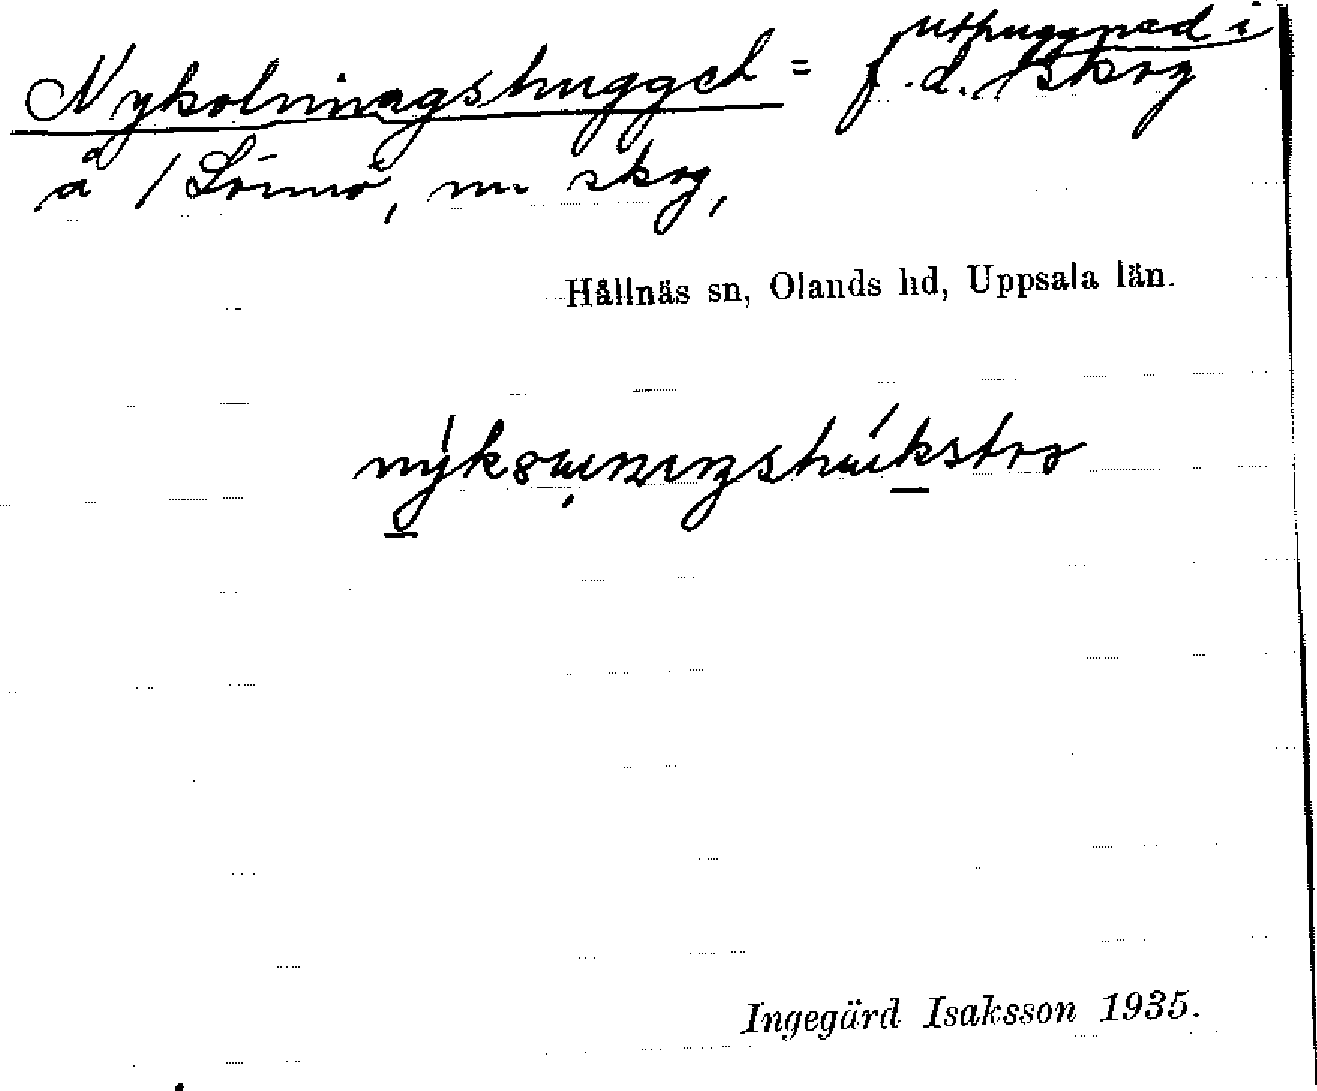 Nykolningshugget = f.d. uthuggned i skog
å Sörmo, nu skog,
Hållnäs sn, Olands hd, Uppsala län.
Ingegärd Isaksson 1935.